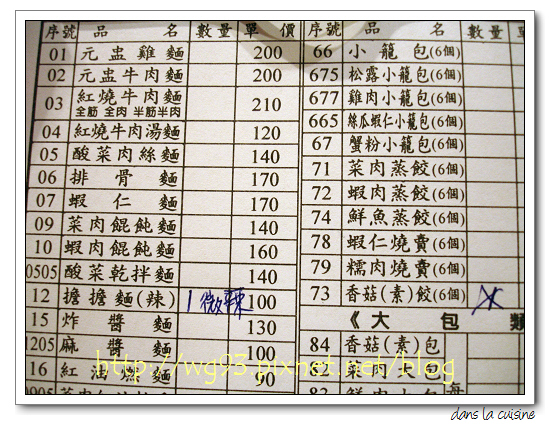 序號 品 名 數量 單 價
01 元盅雞麵 200
02 元盅牛肉麵 200
03 紅燒牛肉麵 210
全筋 全肉 半筋半肉
04 紅燒牛肉湯麵 120
05 酸菜肉絲麵 140
06 排骨麵 170
07 蝦仁麵 170
09 菜肉餛飩麵 140
10 蝦肉餛飩麵 160
0505 酸菜乾拌麵 140
12 擔擔麵(辣) 1 微辣 100
15 炸醬麵 130
1205 麻醬麵 100
16 紅油燃麵 90
序號 品 名 數量 單
66 小籠包(6個)
675 松露小籠包(6個)
677 雞肉小籠包(6個)
665 絲瓜蝦仁小籠包(6個)
67 蟹粉小籠包(6個)
71 菜肉蒸餃(6個)
72 蝦肉蒸餃(6個)
74 鮮魚蒸餃(6個)
78 蝦仁燒賣(6個)
79 糯肉燒賣(6個)
73 香菇(素)餃(6個)
《大 包 類
84 香菇(素)包
82 菜肉大包
http://wg93.pixnet.net/blog
dans la cuisine